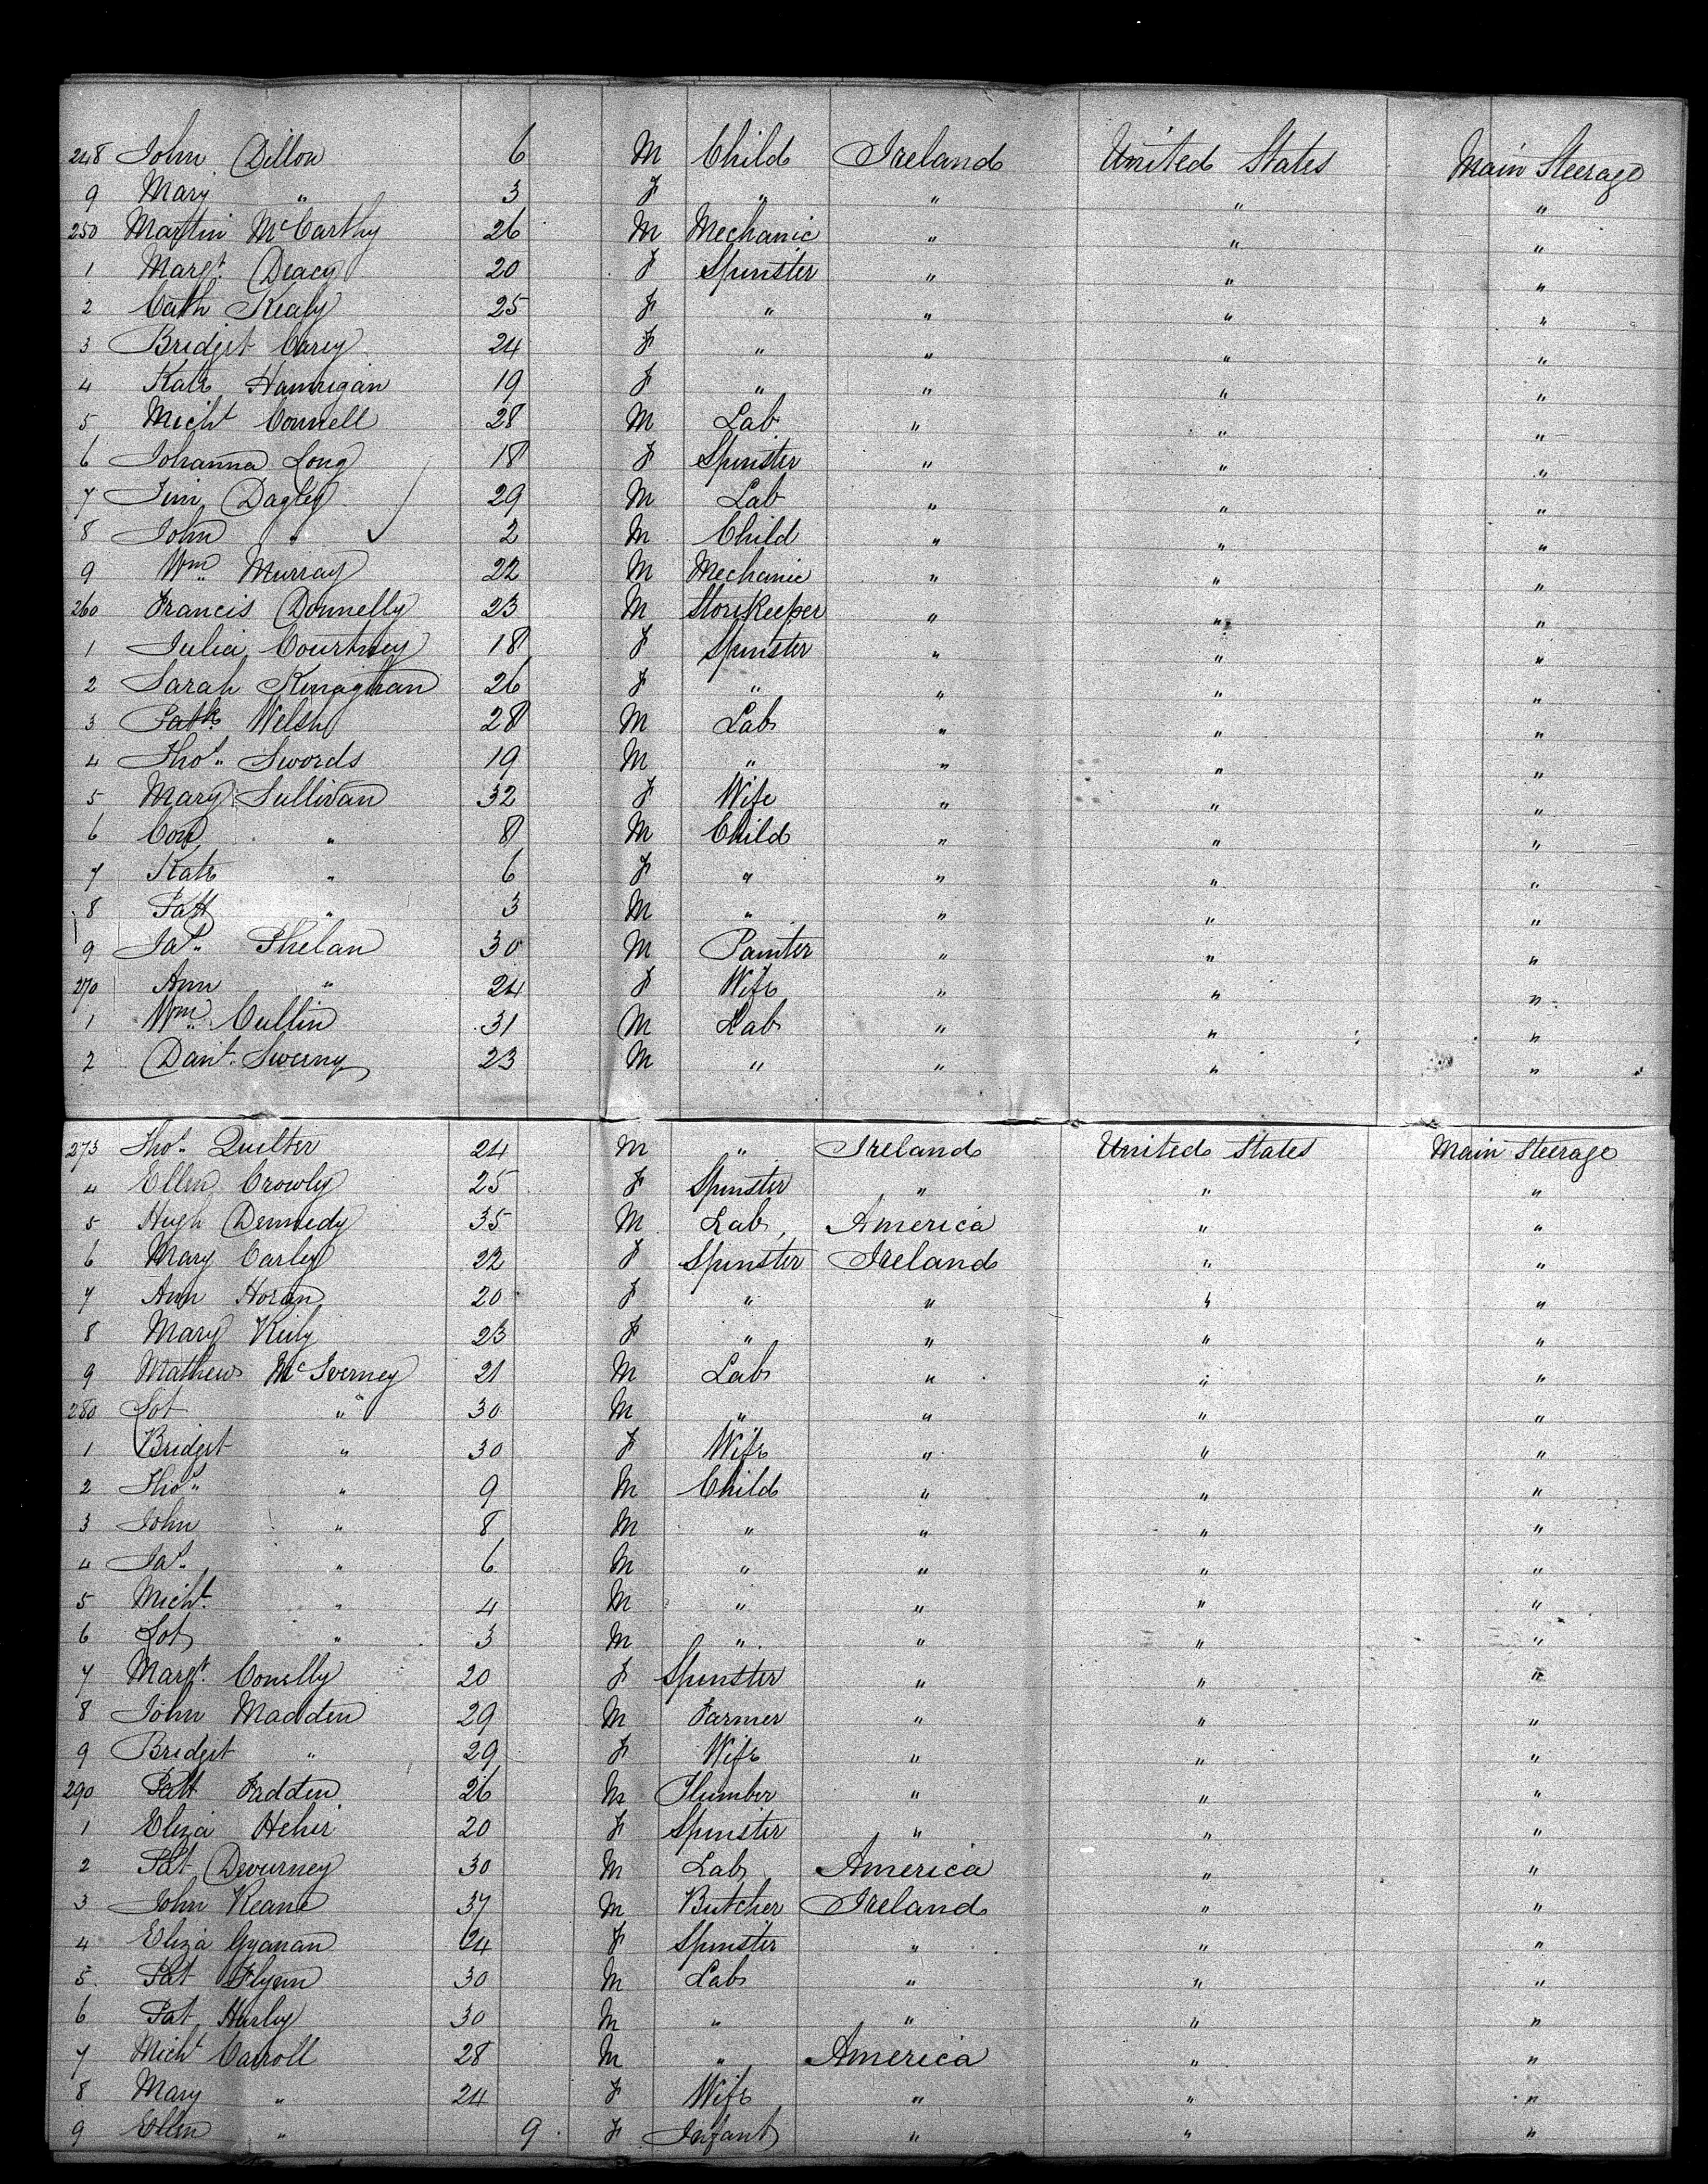 248 John Dillon 6 M Child Ireland United States Main Steerage
9 Mary " 3 F " " " "
250 Martin McCarthy 26 M Mechanic " " "
1 Margt. Deacy 20 F Spinster " " "
2 Cath Kealy 25 F " " " "
3 Bridget Carey 24 F " " " "
4 Kate Hannigan 19 F " " " "
5 Michl Connell 28 M Lab " " "
6 Johanna Long 18 F Spinster " " "
7 Jim Dagley 29 M Lab " " "
8 John " 2 M Child " " "
9 Wm. Murray 22 M Mechanic " " "
260 Francis Donnelly 23 M StoreKeeper " " "
1 Julia Courtney 18 F Spinster " " "
2 Sarah Kinaghan 26 F " " " "
3 Patk. Welsh 28 M Lab " " "
4 Thos. Swords 19 M " " " "
5 Mary Sullivan 32 F Wife " " "
6 Con " 8 M Child " " "
7 Kate " 6 F " " " "
8 Patt " 3 M " " " "
9 Jas. Phelan 30 M Painter " " "
270 Ann " 24 F Wife " " "
1 Wm. Cullin 31 M Lab " " "
2 Danl. Swerny 23 M " " " "
273 Thos. Quilter 24 M " Ireland United States Main Steerage
4 Ellen Crowly 25 F Spinster " " "
5 Hugh Dennedy 35 M Lab America " "
6 Mary Carley 22 F Spinster Ireland " "
7 Ann Horan 20 F " " " "
8 Mary Kiely 23 F " " " "
9 Mathew McIverney 21 M Lab " " "
280 Lot " 30 M " " " "
1 Bridget " 30 F Wife " " "
2 Thos. " 9 M Child " " "
3 John " 8 M " " " "
4 Jas. " 6 M " " " "
5 Michl. " 4 M " " " "
6 Lot " 3 M " " " "
7 Margt. Conelly 20 F Spinster " " "
8 John Madden 29 M Farmer " " "
9 Bridget " 29 F Wife " " "
290 Patt Fadden 26 M Plumber " " "
1 Eliza Hehir 20 F Spinster " " "
2 Pat Devurney 30 M Lab America " "
3 John Keane 37 M Butcher Ireland " "
4 Eliza Gyanan 24 F Spinster " " "
5 Pat Flynn 30 M Lab " " "
6 Pat Hurley 30 M " " " "
7 Michl Carroll 28 M " America " "
8 Mary " 24 F Wife " " "
9 Ellen " 9 F Infant " " "